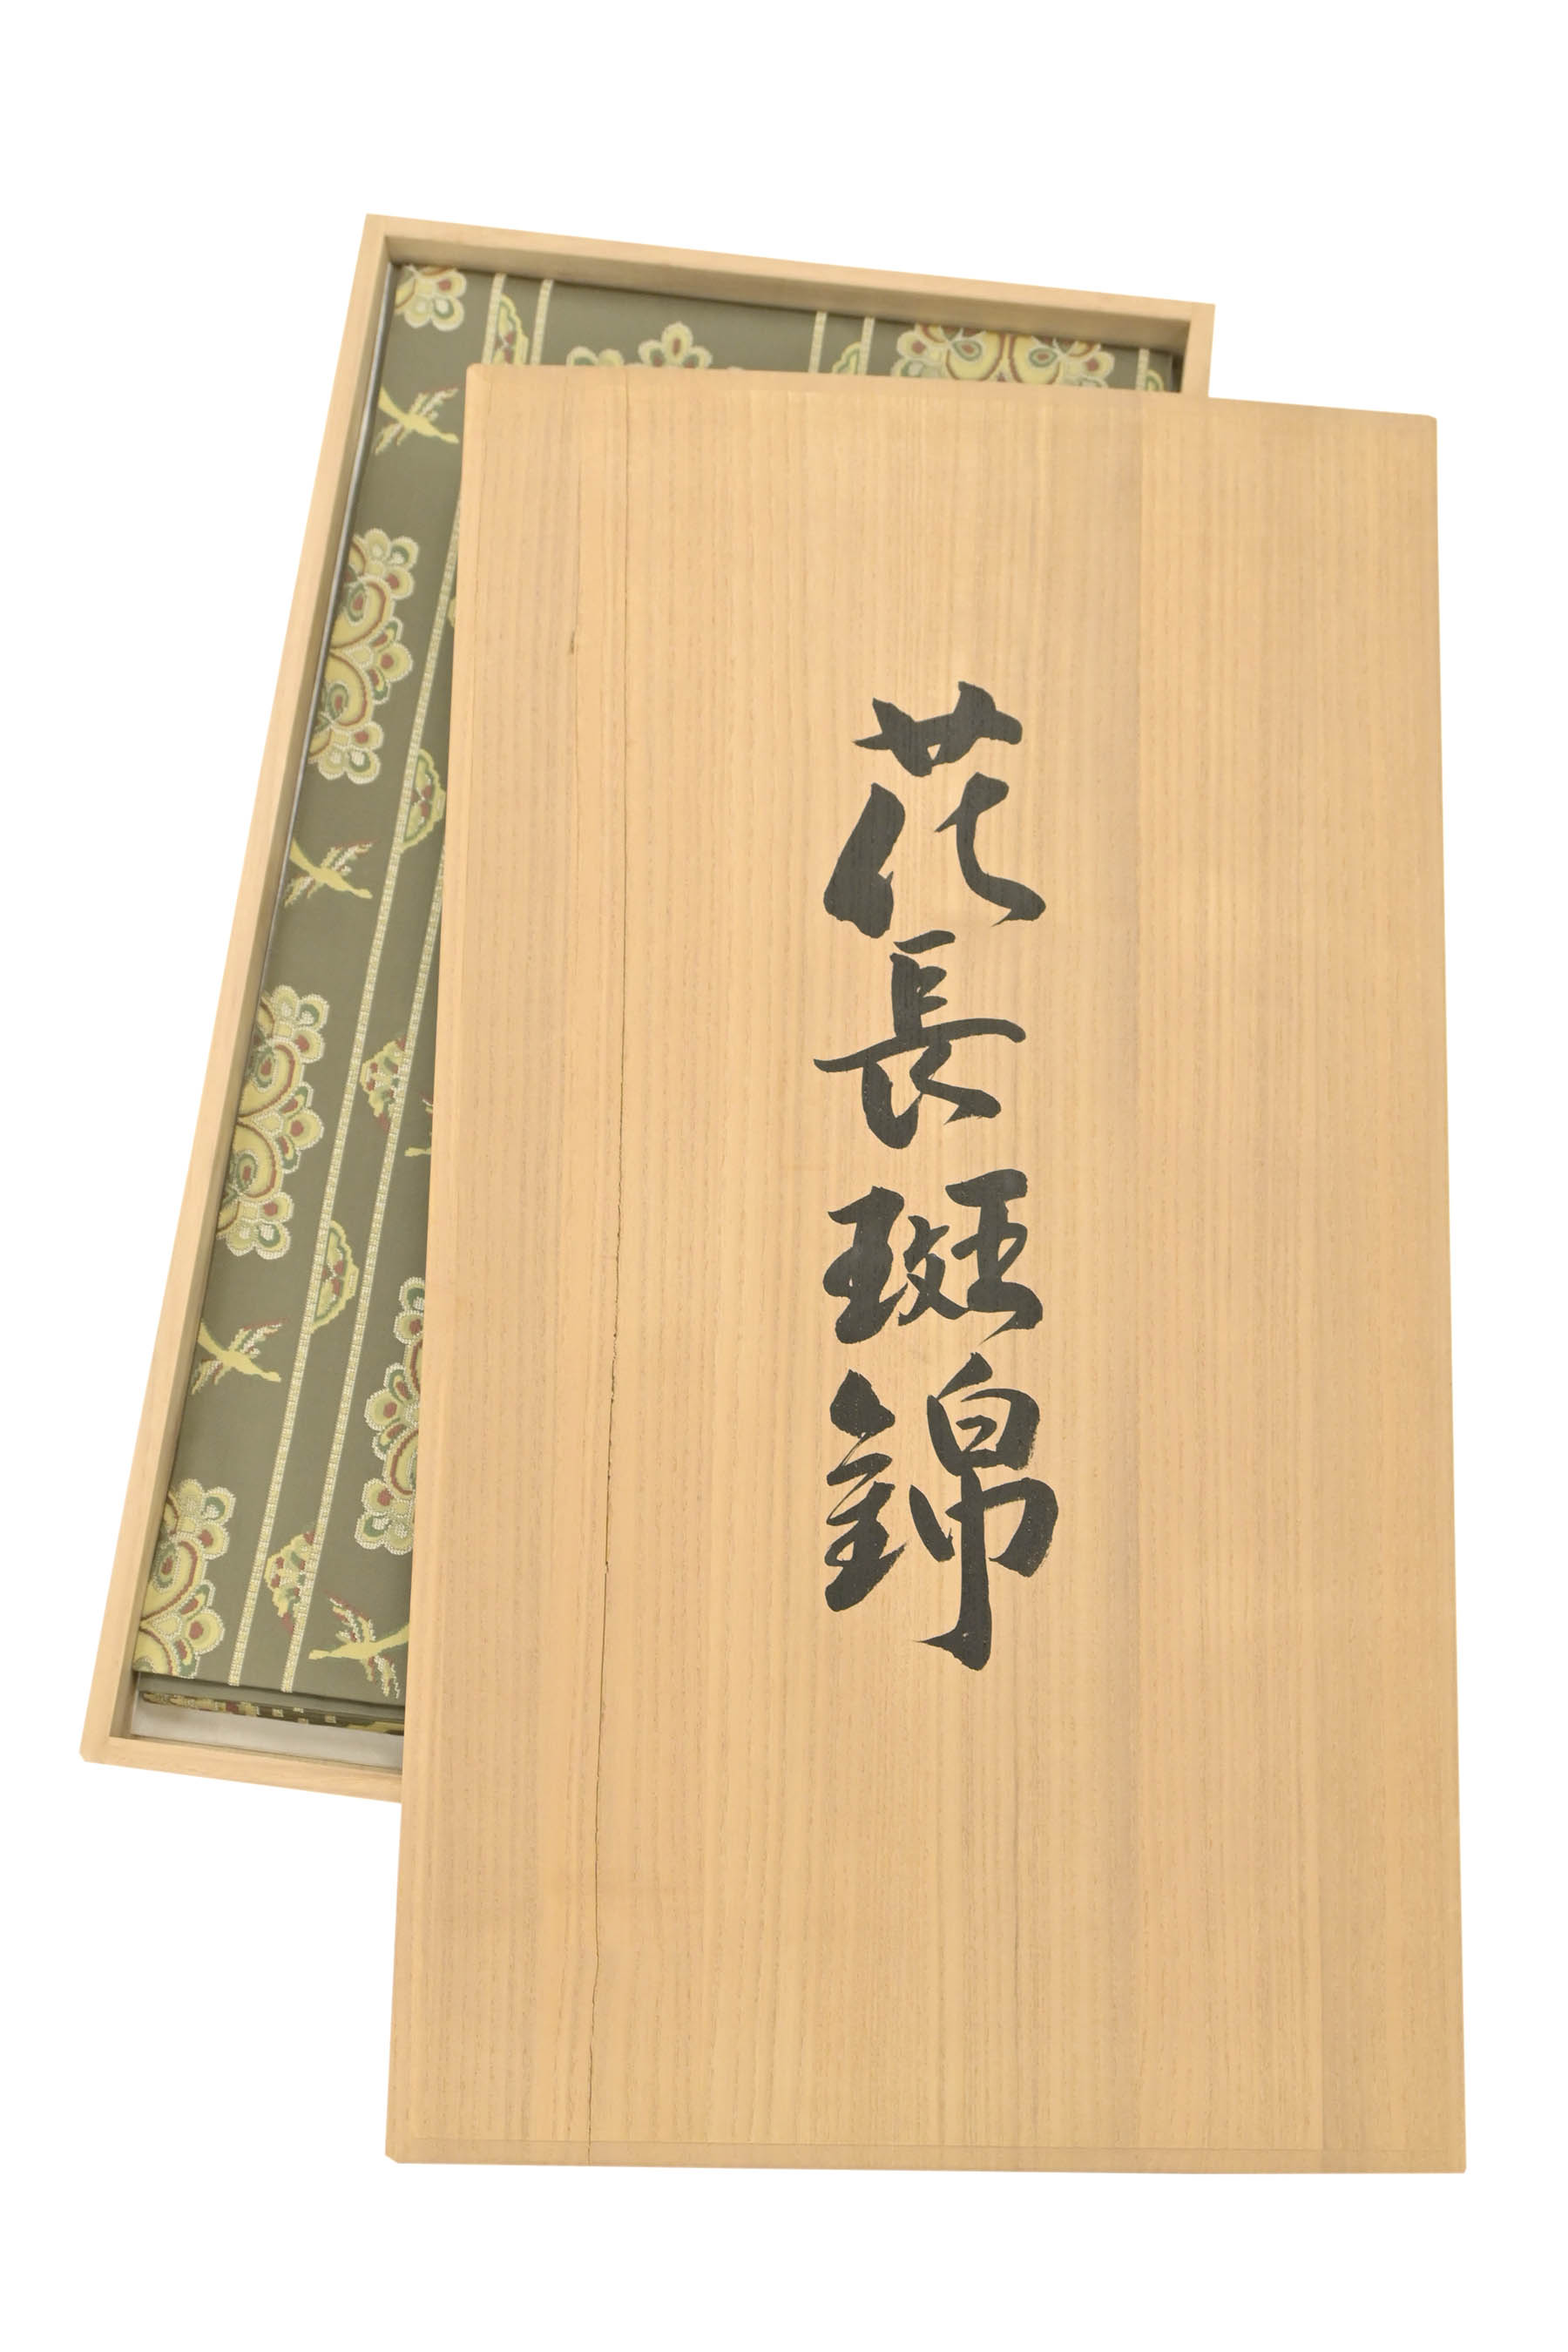 花長斑錦